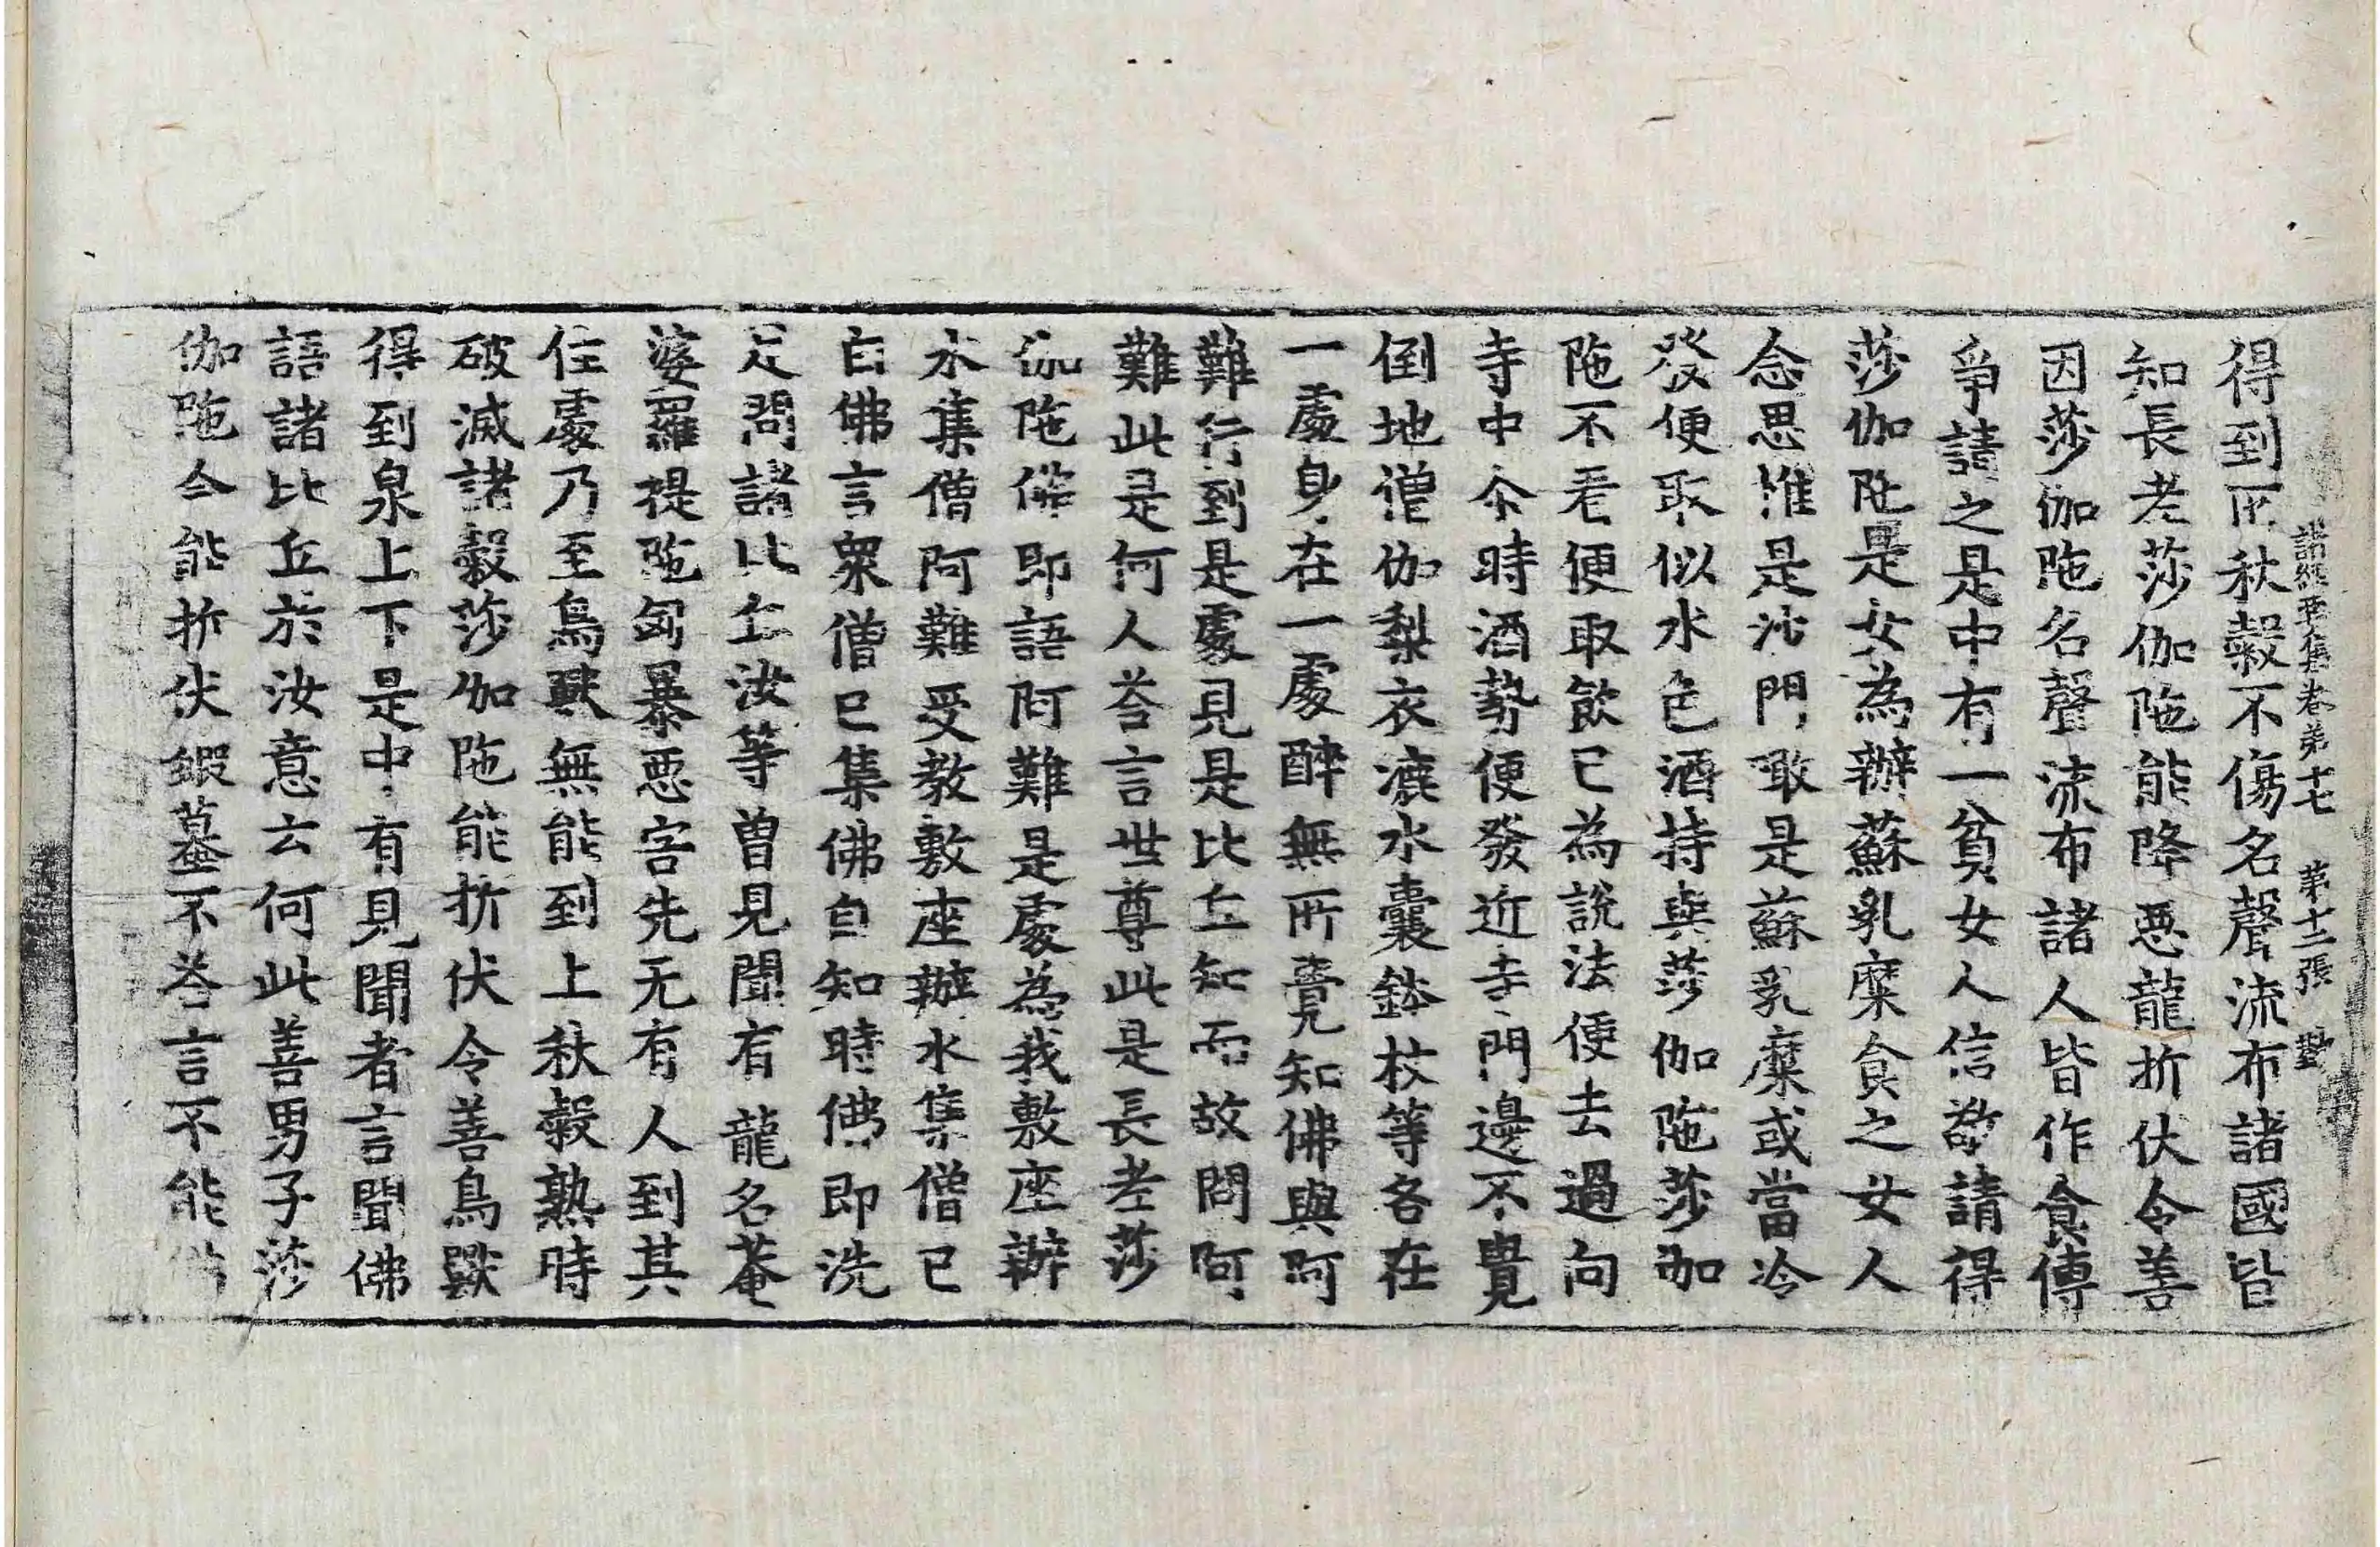 諸經要集卷第十七 第十二張
得到所秋穀不傷名聲流布諸國皆
知長老莎伽陁能降惡龍折伏令善
因莎伽陁名聲流布諸人皆作食傳
爭請之是中有一貧女人信敬請得
莎伽陁是女為辦蘇乳糜食之女人
念思惟是沙門噉是蘇乳糜或當冷
發便取似水色酒持與莎伽陁莎伽
陁不看便取飲已為說法便去過向
寺中尒時酒勢便發近寺門邊不覺
倒地僧伽梨衣漉水囊鉢杖等各在
一處身在一處醉無所覺知佛與阿
難行到是處見是比丘知而故問阿
難此是何人荅言世尊此是長老莎
伽陁佛即語阿難是處為我敷座辦
水集僧阿難受教敷座辦水集僧已
白佛言眾僧已集佛自知時佛即洗
足問諸比丘汝等曾見聞有龍名菴
婆羅提陁匈暴惡害先无有人到其
住處乃至鳥獸無能到上秋穀熟時
破滅諸穀莎伽陁能折伏令善鳥獸
得到泉上下是中有見聞者言聞佛
語諸比丘於汝意云何此善男子莎
伽陁今能折伏蝦蟇不荅言不能